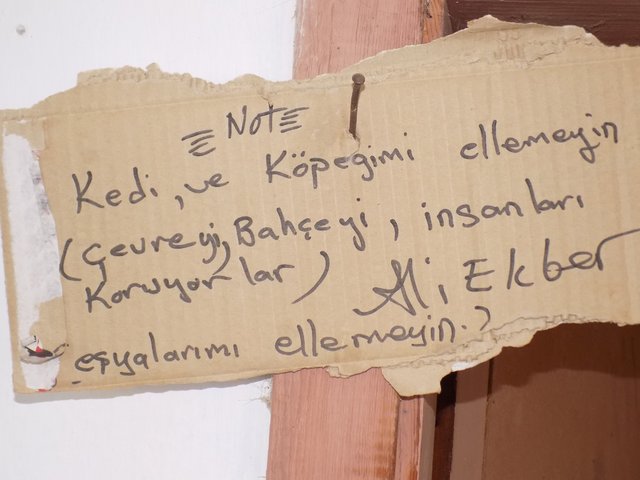 Not
Kedi, ve Köpeğimi ellemeyin
(Çevreyi, Bahçeyi, insanları
Koruyorlar) Ali Ekber
eşyalarımı ellemeyin.)